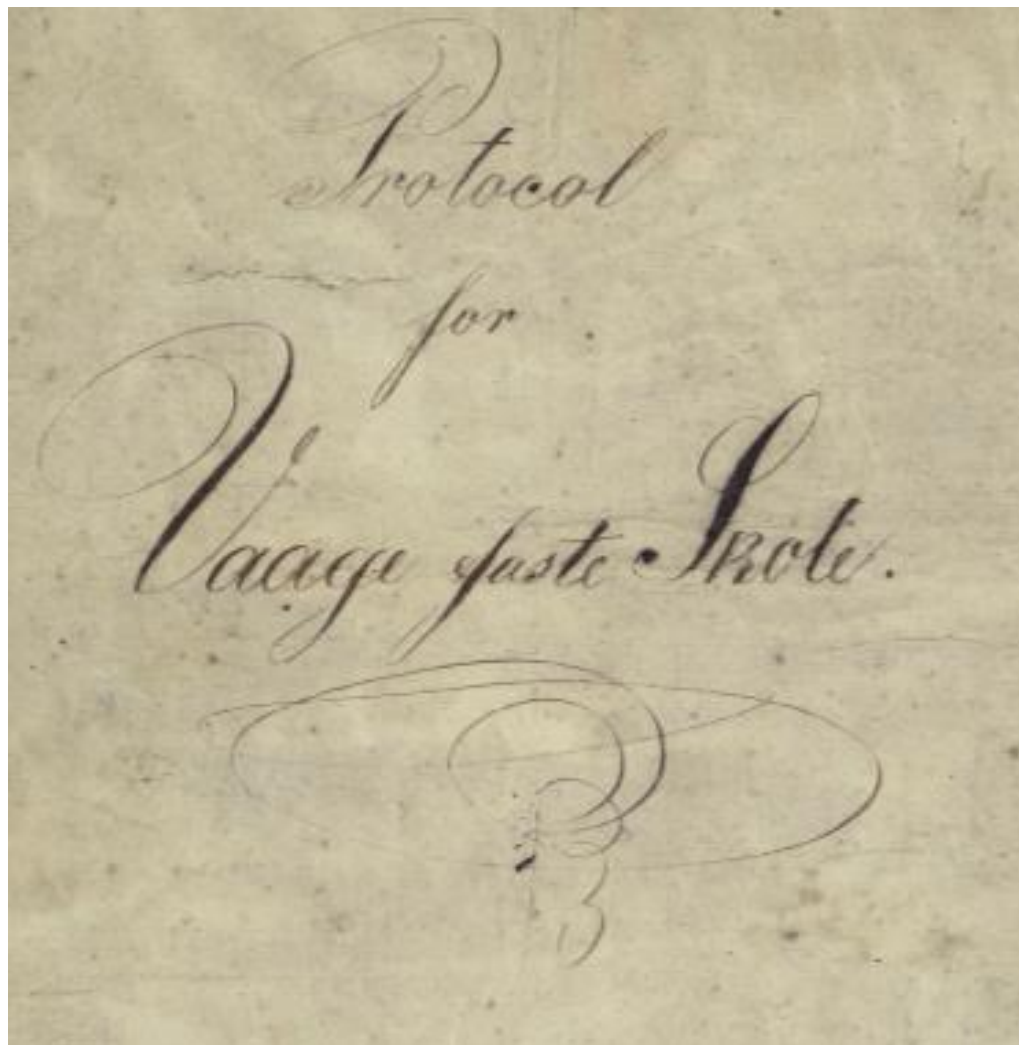 Protocol
for
Vaage faste Skole.